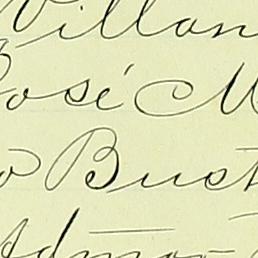 Villan
José M
o Bust
Admo